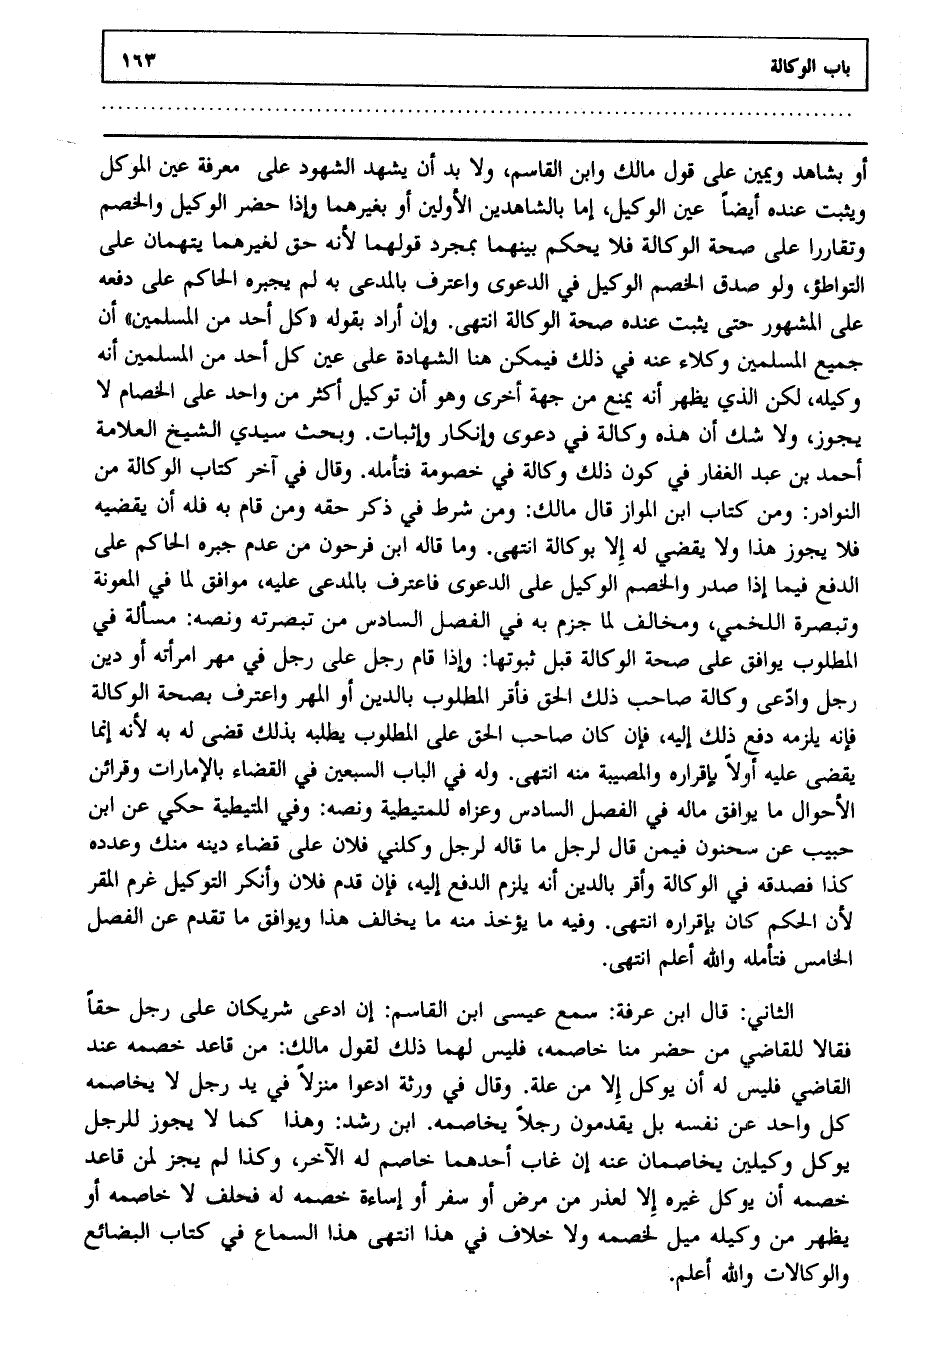 باب الوكالة ١٦٣
أو بشاهد ويمين على قول مالك وابن القاسم، ولا بد أن يشهد الشهود على معرفة عين الموكل
ويثبت عنده أيضاً عين الوكيل، إما بالشاهدين الأولين أو بغيرهما وإذا حضر الوكيل والخصم
وتقاررا على صحة الوكالة فلا يحكم بينهما بمجرد قولهما لأنه حق لغيرهما يتهمان على
التواطؤ، ولو صدق الخصم الوكيل في الدعوى واعترف بالمدعى به لم يجبره الحاكم على دفعه
على المشهور حتى يثبت عنده صحة الوكالة انتهى. وإن أراد بقوله «كل أحد من المسلمين» أن
جميع المسلمين وكلاء عنه في ذلك فيمكن هنا الشهادة على عين كل أحد من المسلمين أنه
وكيله، لكن الذي يظهر أنه يمنع من جهة أخرى وهو أن توكيل أكثر من واحد على الخصام لا
يجوز، ولا شك أن هذه وكالة في دعوى وإنكار وإثبات. وبحث سيدي الشيخ العلامة
أحمد بن عبد الغفار في كون ذلك وكالة في خصومة فتأمله. وقال في آخر كتاب الوكالة من
النوادر: ومن كتاب ابن المواز قال مالك: ومن شرط في ذكر حقه ومن قام به فله أن يقضيه
فلا يجوز هذا ولا يقضي له إلا بوكالة انتهى. وما قاله ابن فرحون من عدم جبره الحاكم على
الدفع فيما إذا صدر والخصم الوكيل على الدعوى فاعترف بالمدعى عليه، موافق لما في المعونة
وتبصرة اللخمي، ومخالف لما جزم به في الفصل السادس من تبصرته ونصه: مسألة في
المطلوب يوافق على صحة الوكالة قبل ثبوتها: وإذا قام رجل على رجل في مهر امرأته أو دين
رجل وادّعى وكالة صاحب ذلك الحق فأقر المطلوب بالدين أو المهر واعترف بصحة الوكالة
فإنه يلزمه دفع ذلك إليه، فإن كان صاحب الحق على المطلوب يطلبه بذلك قضى له به لأنه إنما
يقضى عليه أولاً بإقراره والمصيبة منه انتهى. وله في الباب السبعين في القضاء بالإمارات وقرائن
الأحوال ما يوافق ماله في الفصل السادس وعزاه للمتيطية ونصه: وفي المتيطية حكي عن ابن
حبيب عن سحنون فيمن قال لرجل ما قاله لرجل وكلني فلان على قضاء دينه منك وعدده
كذا فصدقه في الوكالة وأقر بالدين أنه يلزم الدفع إليه، فإن قدم فلان وأنكر التوكيل غرم المقر
لأن الحكم كان بإقراره انتهى. وفيه ما يؤخذ منه ما يخالف هذا ويوافق ما تقدم عن الفصل
الخامس فتأمله والله أعلم انتهى.
الثاني: قال ابن عرفة: سمع عيسى ابن القاسم: إن ادعى شريكان على رجل حقاً
فقالا للقاضي من حضر منا خاصمه، فليس لهما ذلك لقول مالك: من قاعد خصمه عند
القاضي فليس له أن يوكل إلا من علة. وقال في ورثة ادعوا منزلاً في يد رجل لا يخاصمه
كل واحد عن نفسه بل يقدمون رجلاً يخاصمه. ابن رشد: وهذا كما لا يجوز للرجل
يوكل وكيلين يخاصمان عنه إن غاب أحدهما خاصم له الآخر، وكذا لم يجز لمن قاعد
خصمه أن يوكل غيره إلا لعذر من مرض أو سفر أو إساءة خصمه له فحلف لا خاصمه أو
يظهر من وكيله ميل لخصمه ولا خلاف في هذا انتهى هذا السماع في كتاب البضائع
والوكالات والله أعلم.